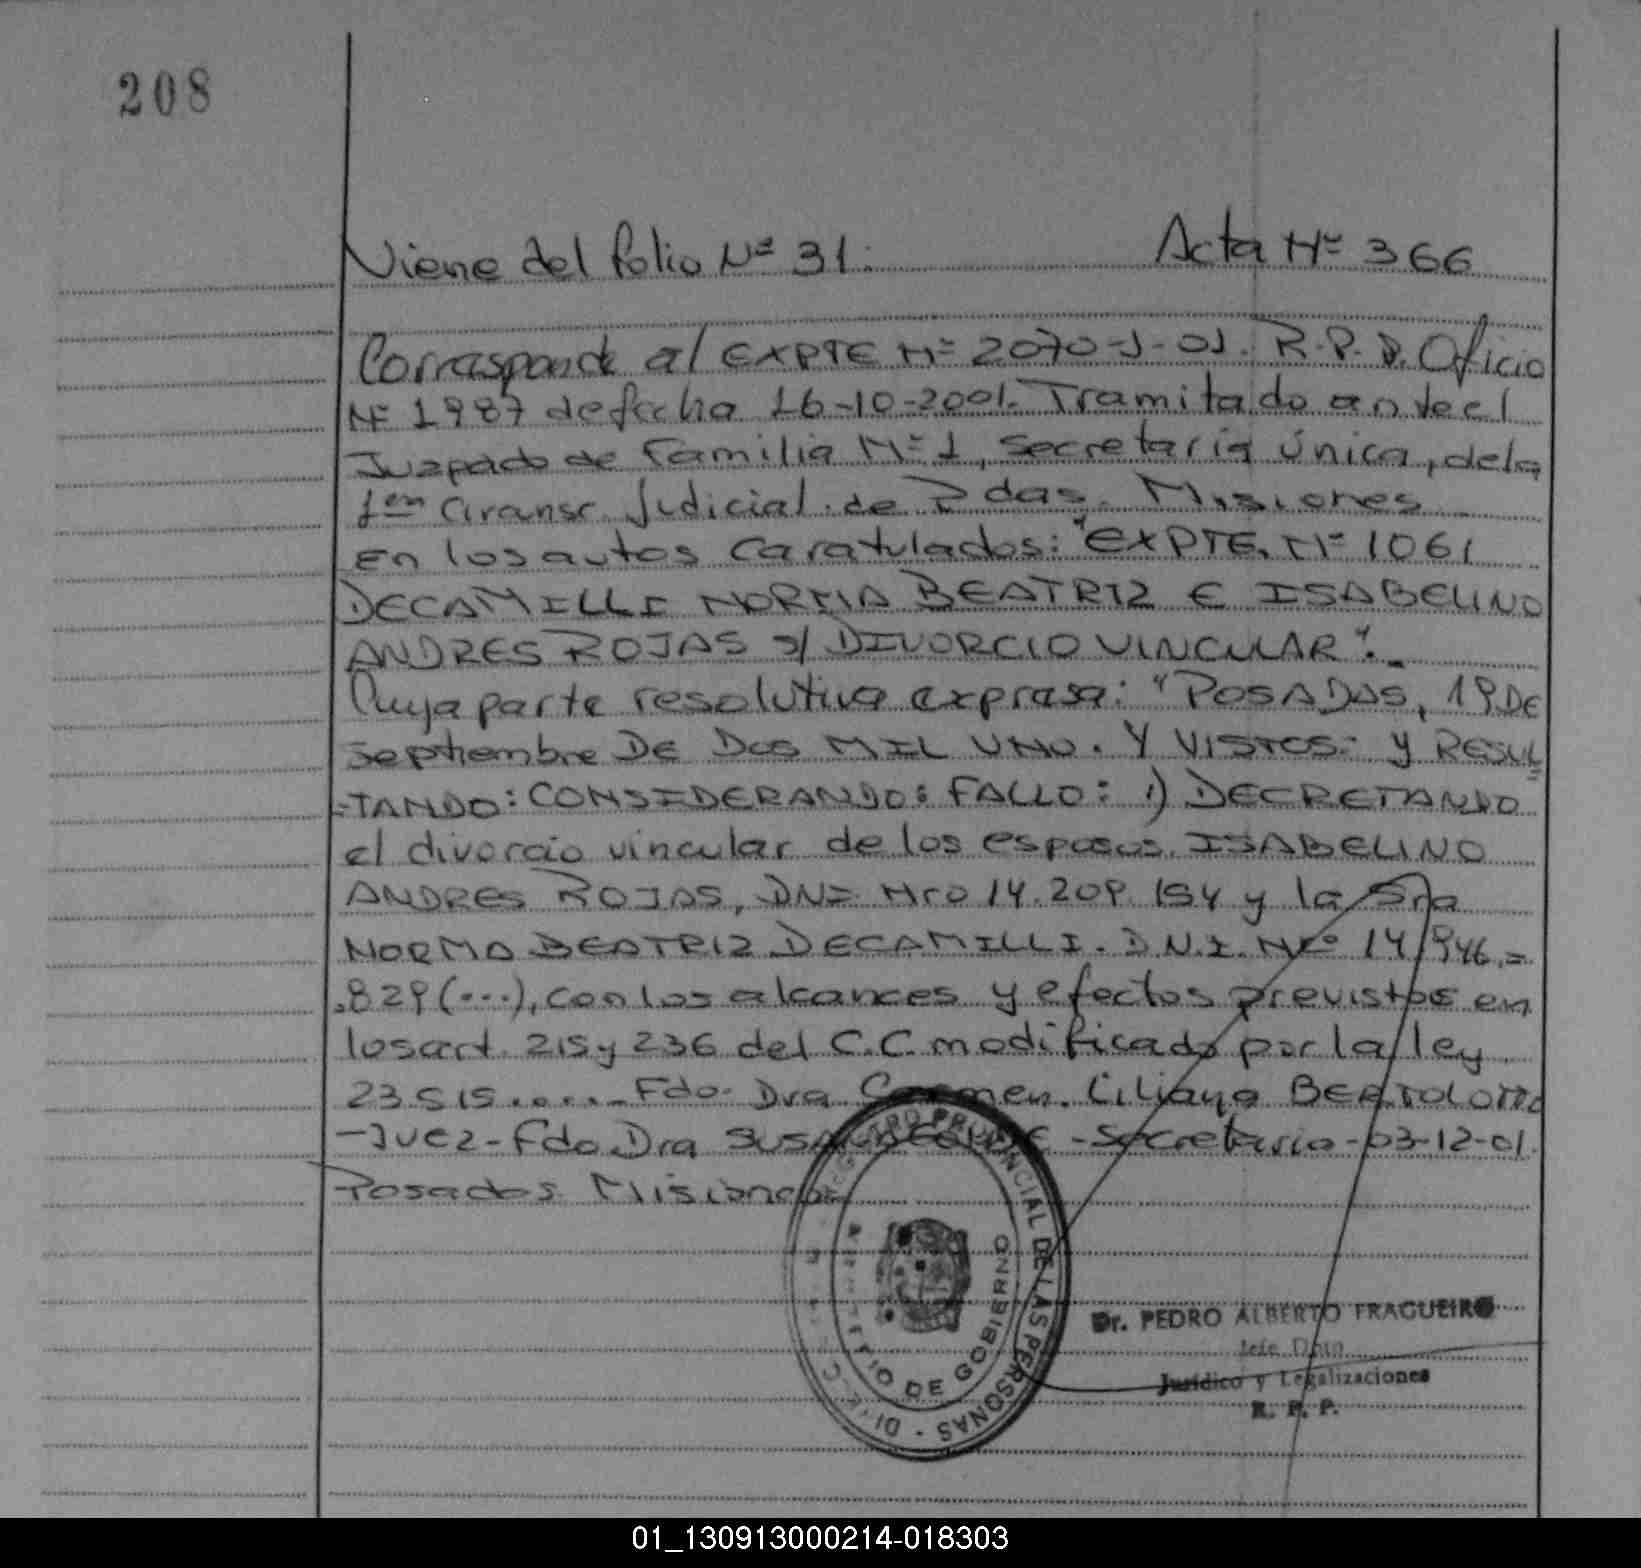 208
Viene del folio Nº 31. Acta Nº 366
Corresponde al EXPTE Nº 2070-J-01. R.P.P. Oficio
Nº 1987 de fecha 16-10-2001. Tramitado ante el
Juzgado de Familia Nº 1, Secretaría única, de la
1era Circunsc. Judicial de Pdas. Misiones
En los autos caratulados: "EXPTE. Nº 1061
DECAMILLI NORMA BEATRIZ E ISABELINO
ANDRES ROJAS S/ DIVORCIO VINCULAR".-
Cuya parte resolutiva expresa: "POSADAS, 19 DE
septiembre DE DOS MIL UNO. Y VISTOS: y RESUL
-TANDO: CONSIDERANDO: FALLO: 1) DECRETANDO
el divorcio vincular de los esposos ISABELINO
ANDRES ROJAS, DNI Nro 14.209.154 y la Sra
NORMA BEATRIZ DECAMILLI. D.N.I. Nro 14.946.=
.829 (...), con los alcances y efectos previstos en
los art. 215 y 236 del C.C. modificado por la ley
23515..... Fdo. Dra Carmen Liliana BERTOLOTTO
-Juez- Fdo Dra - Secretaria - 03-12-01.
Posadas Misiones
REGISTRO PROVINCIAL DE LAS PERSONAS
MINISTERIO DE GOBIERNO
Dr. PEDRO ALBERTO FRAGUEIRO
Jefe Dpto
Jurídico y Legalizaciones
R. P. P.
01_130913000214-018303